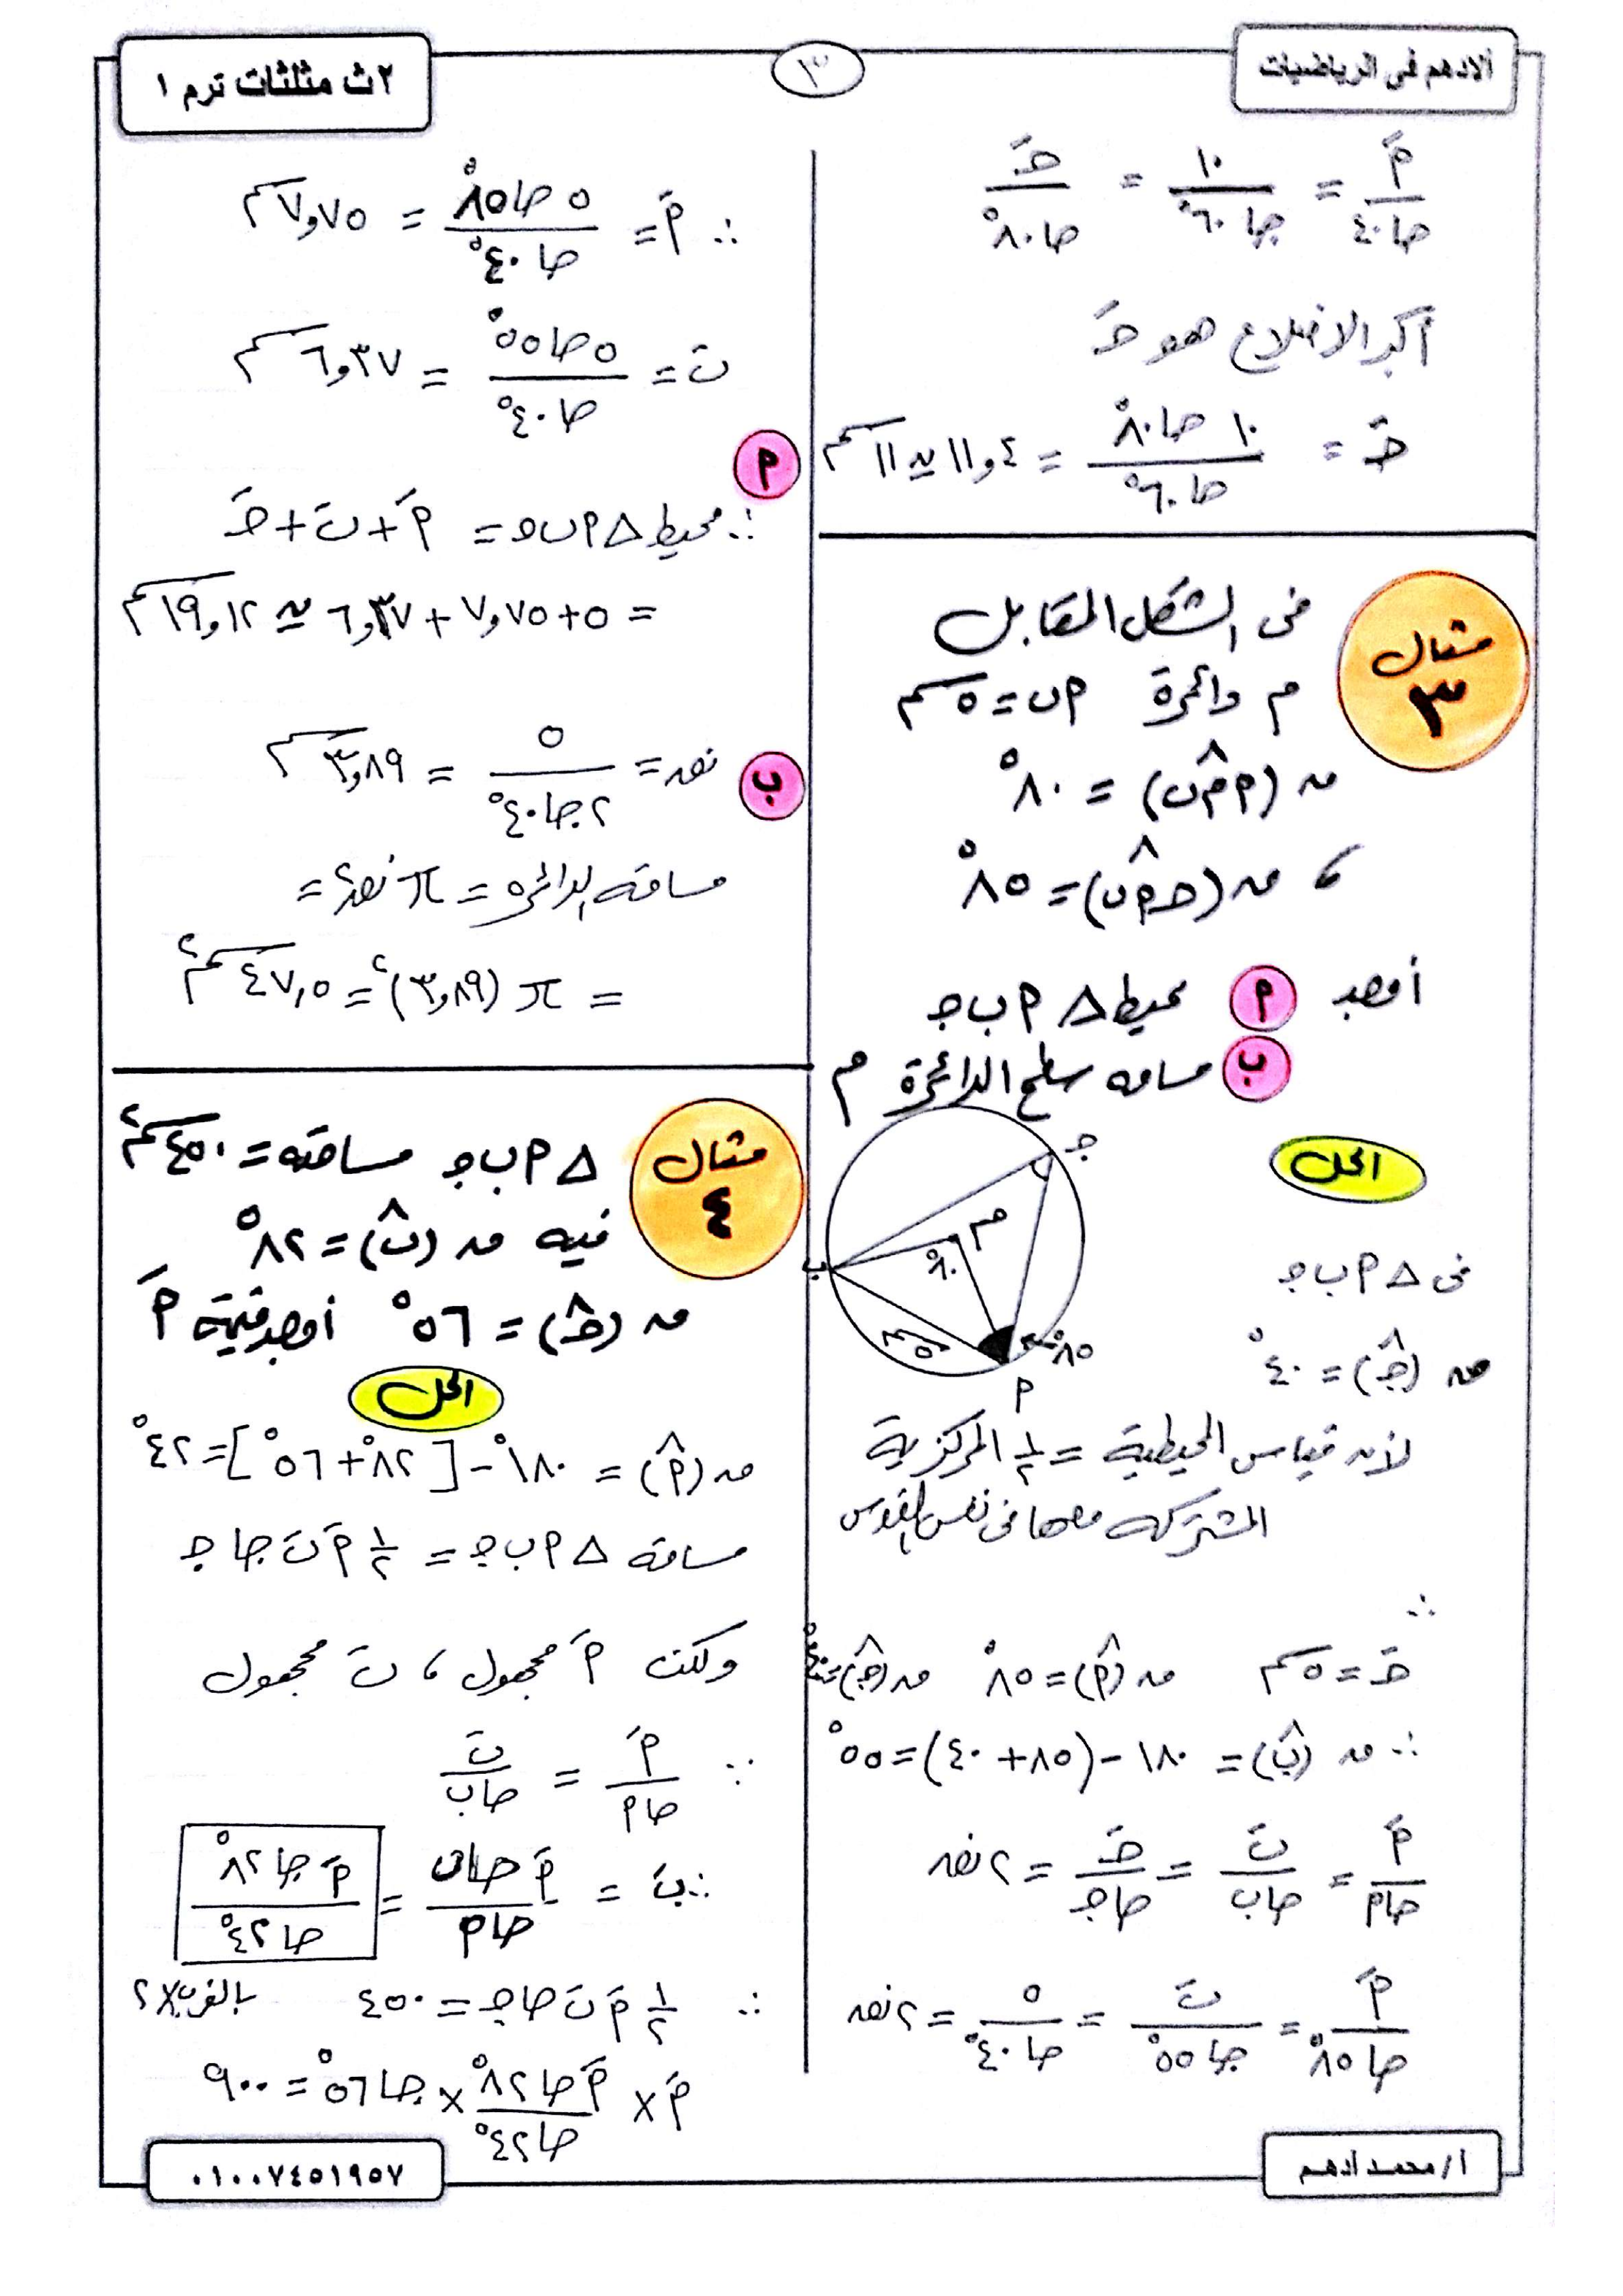 ألادهم فى الرياضيات
٣
٢ث مثلثات ترم ١
أَ/جا٤٠ = ١٠/جا٦٠° = جـَ/جا٨٠°
أكبر الاضلاع هو جـَ
جـَ = ١٠ جا٨٠°/جا٦٠° = ١١,٤ ≃ ١١ سم
مثال ٣
فى الشكل المقابل
م دائرة أب = ٥ سم
ق (أم̂ب) = ٨٠°
، ق (جـأ̂ب) = ٨٥°
أوجد أ محيط △ أ ب جـ
ب مساحه سطح الدائرة م
الحل
جـ
م
٨٠°
ب
٥ سم
٨٥°
أ
فى △ أ ب جـ
ق (جـ̂) = ٤٠°
لأنه قياس المحيطية = ١/٢ المركزية
المشتركه معها فى نفس القوس
∴
جـَ = ٥ سم ق (أ̂) = ٨٥° ق (جـ̂) = ٤٠°
∴ ق (ب̂) = ١٨٠ - (٨٥ + ٤٠) = ٥٥°
أَ/جاأ = بَ/جاب = جـَ/جاجـ = ٢ نق
أَ/جا٨٥° = بَ/جا٥٥° = ٥/جا٤٠° = ٢ نق
∴ أَ = ٥ جا٨٥°/جا٤٠° = ٧,٧٥ سم
بَ = ٥ جا٥٥°/جا٤٠° = ٦,٣٧ سم
أ
∴ محيط △ أ ب جـ = أَ + بَ + جـَ
= ٥ + ٧,٧٥ + ٦,٣٧ ≃ ١٩,١٢ سم
ب نق = ٥/٢جا٤٠° = ٣,٨٩ سم
مساحه الدائره = π نق٢ =
= π (٣,٨٩)٢ = ٤٧,٥ سم٢
مثال ٤
△ أ ب جـ مساحته = ٤٥٠ سم٢
فيه ق (ب̂) = ٨٢°
ق (جـ̂) = ٥٦° أوجد قيمة أَ
الحل
ق (أ̂) = ١٨٠° - [٨٢° + ٥٦°] = ٤٢°
مساحة △ أ ب جـ = ١/٢ أَ بَ جا جـ
ولكن أَ مجهول ، بَ مجهول
∵ أَ/جاأ = بَ/جاب
∴ بَ = أَ جاب/جاأ = أَ جا٨٢°/جا٤٢°
∴ ١/٢ أَ بَ جاجـ = ٤٥٠ بالضرب×٢
أَ × أَ جا٨٢°/جا٤٢° × جا٥٦° = ٩٠٠
أ/محمد أدهم
٠١٠٠٧٤٥١٩٥٧